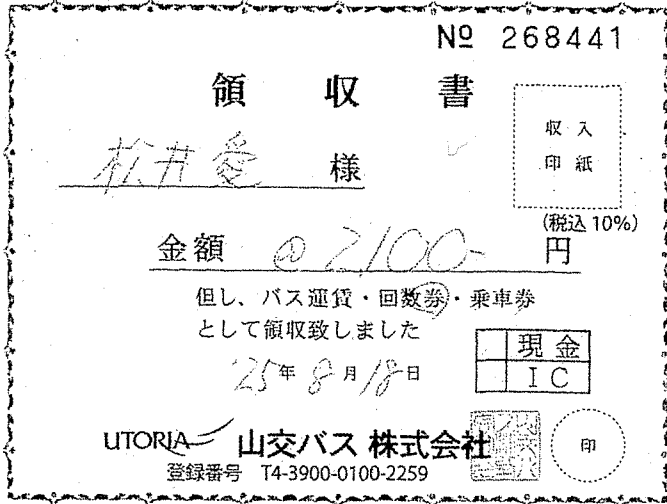 № 268441
領収書
収入
印紙
松井愛 様
(税込10%)
金額 @2,100- 円
但し、バス運賃・回数券・乗車券
として領収致しました
'25年8月18日
現金
IC
UTORIA 山交バス 株式会社
印
登録番号 T4-3900-0100-2259